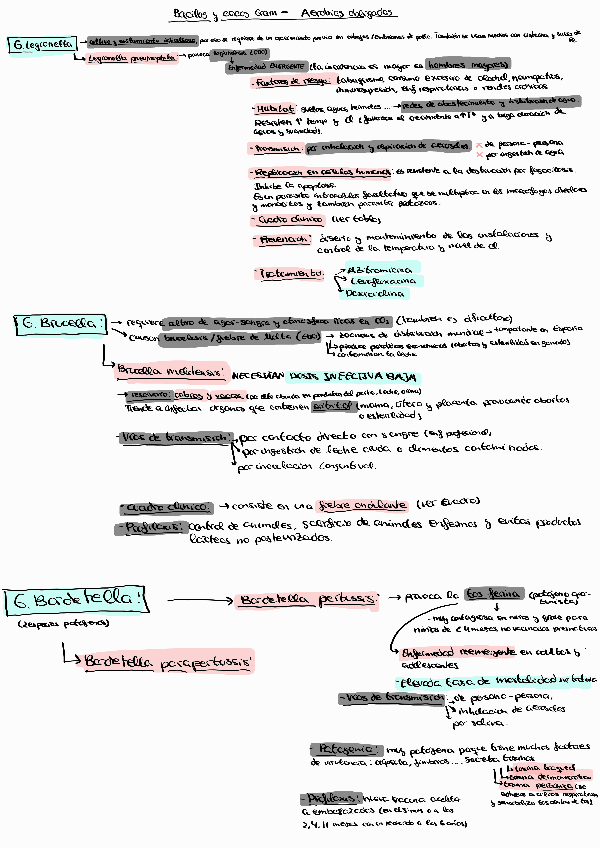 Bacilos y cocos Gram - Aerobios obligados
G. Legionella → cultivo y crecimiento
Legionella pneumophila → provoca legionelosis (EDO)
Enfermedad EMERGENTE (la incidencia es mayor en hombres mayores)
- Factores de riesgo: tabaquismo, consumo excesivo de alcohol,
inmunosupresión, enf. respiratorias o renales crónicas
- Hábitat: suelos, aguas, termales ... → redes de abastecimiento y distribución de agua.
Resisten ↑ tempo y cl
aguas y suciedad.
- Transmisión: por inhalación y aspiración de aerosoles
x de persona - persona
x por ingestión de agua
- Replicación en células humanas: es resistente a la destrucción por fagocitosis
Inhibe la apoptosis.
Es un parásito intracelular facultativo que se multiplica en los macrófagos alveolares
y monocitos y también parasita
- Cuadro clínico (ver tabla)
- Prevención: diseño y mantenimiento de las instalaciones y
control de la temperatura y nivel de cl.
- Tratamiento:
→ Azitromicina
→ Levofloxacina
Doxiciclina
G. Brucella:
→ requiere altivo de agar-sangre y atmósfera ricas en CO2 (también es dificultoso)
→ causan brucelosis / fiebre de Malta (EDO)
→ zoonosis de distribución mundial → importante en España
→ produce pérdidas económicas (abortos y esterilidad en ganado)
→ contaminan la leche
Brucella melitensis: NECESITAN DOSIS INFECTIVA BAJA
→ reservorio: cabras y vacas
Tiende a infectar órganos que contienen eritritol (mama, útero y placenta provocando abortos
o esterilidad)
- Vías de transmisión:
por contacto directo con sangre (enf. profesional)
por ingestión de leche cruda o alimentos contaminados.
por inoculación conjuntival.
- Cuadro clínico: → consiste en una fiebre ondulante (ver cuadro)
- Profilaxis: control de animales, sacrificio de animales enfermos y evitar productos
lácteos no pasteurizados.
G. Bordetella:
(2 especies patógenas)
Bordetella pertussis:
→ provoca la tos ferina
- muy contagiosa en niños y grave para
niños de < 4 meses no vacunados prematuros
Enfermedad reemergente en adultos y
adolescentes
- Elevada tasa de mortalidad
Bordetella parapertussis:
- Vías de transmisión:
de persona - persona,
inhalación de aerosoles
por saliva.
- Patogenia: muy patógena porque tiene muchos factores
de virulencia: cápsula, fimbrias .... secreta toxinas
toxina traqueal
toxina dermonecrótica
toxina pertúsica
- Profilaxis: nueva vacuna acelular
a embarazadas
2, 4, 11 meses con un recuerdo a los 6 años)